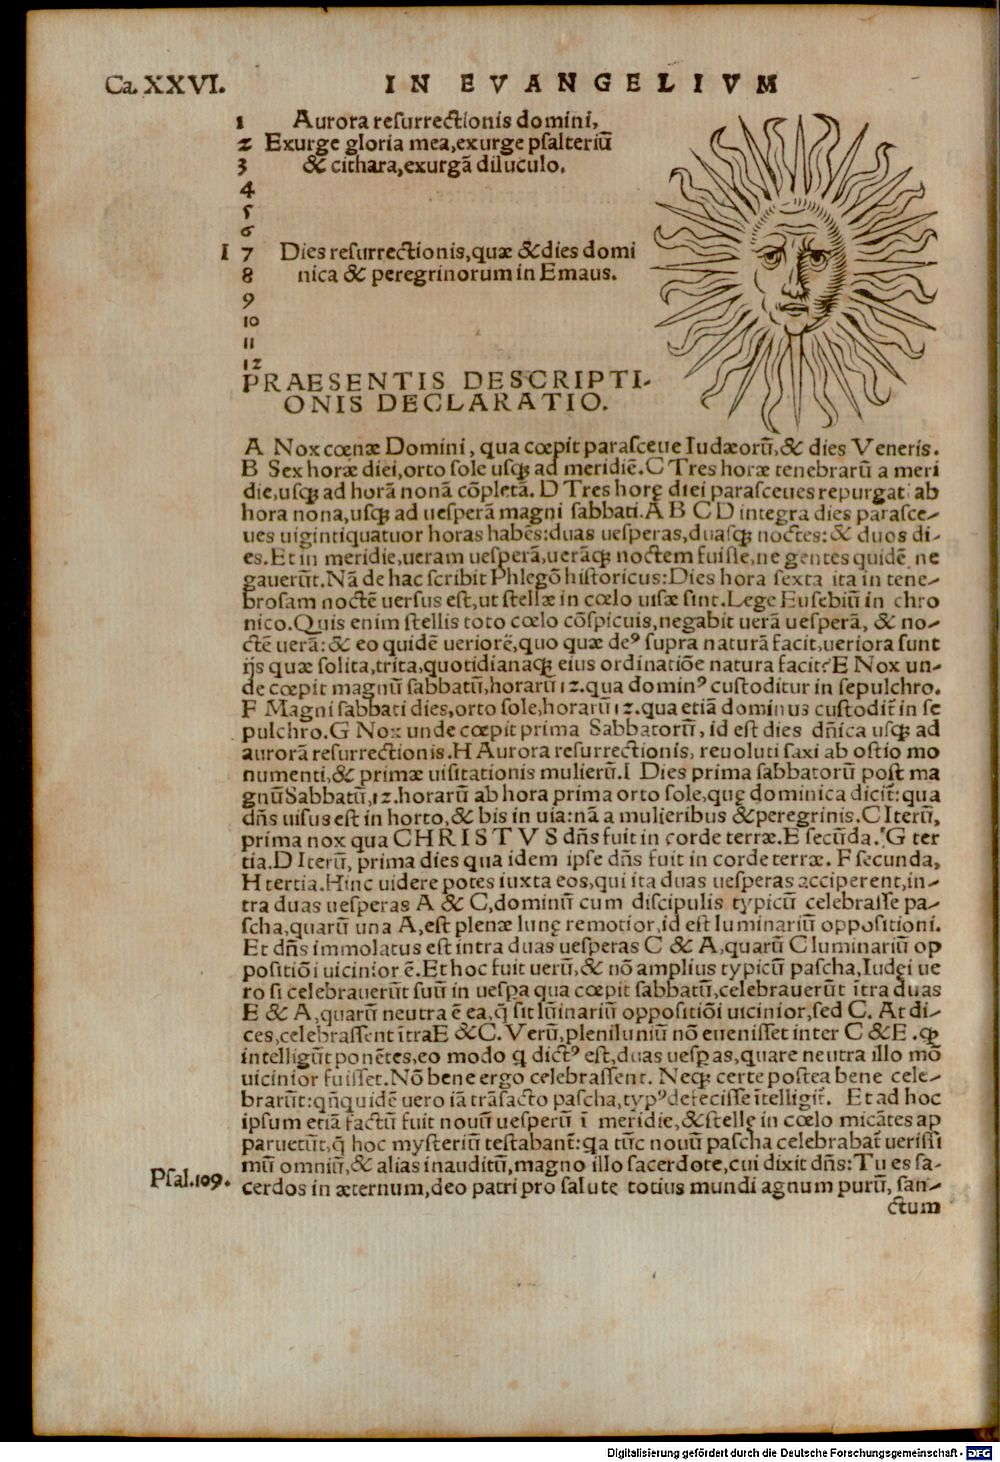 Ca. XXVI. IN EVANGELIVM
1 Aurora resurrectionis domini,
2 Exurge gloria mea, exurge psalteriū
3 & cithara, exurgā diluculo.
4
5
6
I 7 Dies resurrectionis, quæ & dies domi
8 nica & peregrinorum in Emaus.
9
10
11
12
PRAESENTIS DESCRIPTI-
ONIS DECLARATIO.
A Nox cœnæ Domini, qua cœpit parasceue Iudæorū, & dies Veneris.
B Sex horæ diei, orto sole usqȝ ad meridiē. C Tres horæ tenebrarū a meri
die, usqȝ ad horā nonā cōpletā. D Tres horę diei parasceues repurgat: ab
hora nona, usqȝ ad uesperā magni sabbati. A B C D integra dies parasce-
ues uigintiquatuor horas habēs: duas uesperas, duasqȝ noctes: & duos di-
es. Et in meridie, ueram uesperā, uerāqȝ noctem fuisse, ne gentes quidē ne
gauerūt. Nā de hac scribit Phlegō historicus: Dies hora sexta ita in tene-
brosam noctē uersus est, ut stellæ in cœlo uisæ sint. Lege Eusebiū in chro
nico. Quis enim stellis toto cœlo cōspicuis, negabit uerā uesperā, & no-
ctē uerā: & eo quidē ueriorē, quo quæ deꝰ supra naturā facit, ueriora sunt
ijs quæ solita, trita, quotidianaqȝ eius ordinatiōe natura facit? E Nox un-
de cœpit magnū sabbatū, horarū 12. qua dominꝰ custoditur in sepulchro.
F Magni sabbati dies, orto sole, horarū 12. qua etiā dominus custodit̄ in se
pulchro. G Nox unde cœpit prima Sabbatorū, id est dies dn̄ica usqȝ ad
aurorā resurrectionis. H Aurora resurrectionis, reuoluti saxi ab ostio mo
numenti, & primæ uisitationis mulierū. I Dies prima sabbatorū post ma
gnū Sabbatū, 12. horarū ab hora prima orto sole, quę dominica dicit̄: qua
dn̄s uisus est in horto, & bis in uia: nā a mulieribus & peregrinis. C Iterū,
prima nox qua CHRISTVS dn̄s fuit in corde terræ. E secūda. G ter
tia. D Iterū, prima dies qua idem ipse dn̄s fuit in corde terræ. F secunda,
H tertia. Hinc uidere potes iuxta eos, qui ita duas uesperas acciperent, in-
tra duas uesperas A & C, dominū cum discipulis typicū celebrasse pa-
scha, quarū una A, est plenæ lunę remotior, id est luminariū oppositioni.
Et dn̄s immolatus est intra duas uesperas C & A, quarū C luminariū op
positiōi uicinior ē. Et hoc fuit uerū, & nō amplius typicū pascha, Iudęi ue
ro si celebrauerūt suū in uesp̱a qua cœpit sabbatū, celebrauerūt ītra duas
E & A, quarū neutra ē ea, q̄ sit lūinariū oppositiōi uicinior, sed C. At di-
ces, celebrassent ītra E & C. Verū, pleniluniū nō euenisset inter C & E. qȝ
intelligūt ponētes, eo modo q̄ dictꝰ est, duas uesp̱as, quare neutra illo mō
uicinior fuisset. Nō bene ergo celebrassent. Neqȝ certe postea bene cele-
brarūt: qn̄quidē uero iā trāsacto pascha, typꝰ defecisse ītelligit̄. Et ad hoc
ipsum etiā factū fuit nouū uesperū ī meridie, & stellę in cœlo micātes ap
paruerūt, q̄ hoc mysteriū testabant̄: qa tūc nouū pascha celebrabat̄ uerissi
mū omniū, & alias inauditū, magno illo sacerdote, cui dixit dn̄s: Tu es sa-
Psal. 109. cerdos in æternum, deo patri pro salute totius mundi agnum purū, san-
ctum
Digitalisierung gefördert durch die Deutsche Forschungsgemeinschaft - DFG